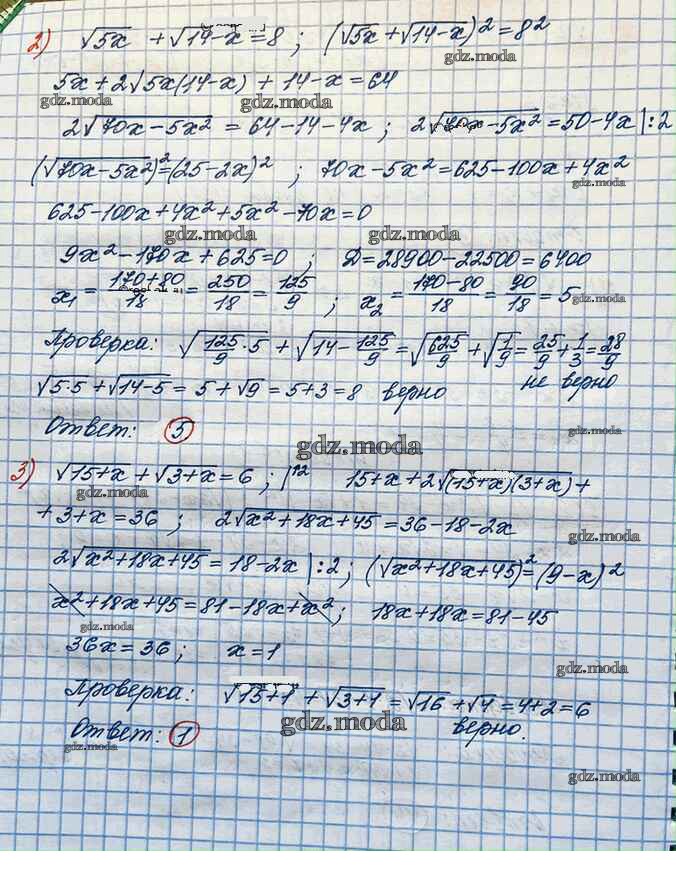 2) √5x + √14-x = 8 ; (√5x + √14-x)² = 8²
gdz.moda
5x + 2√5x(14-x) + 14-x = 64
gdz.moda gdz.moda
2√70x-5x² = 64-14-4x ; 2√70x-5x² = 50-4x |:2
(√70x-5x²)² = (25-2x)² ; 70x-5x² = 625-100x+4x²
gdz.moda
625-100x+4x²+5x²-70x=0
gdz.moda gdz.moda
9x²-170x+625=0 ; D=28900-22500=6400
x₁ = 170+80/18 = 250/18 = 125/9 ; x₂ = 170-80/18 = 90/18 = 5
gdz.moda
Проверка: √125/9·5 + √14-125/9 = √625/9 + √1/9 = 25/9 + 1/3 = 28/9
не верно
√5·5 + √14-5 = 5+√9 = 5+3 = 8 верно
Ответ: 5
gdz.moda
3) √15+x + √3+x = 6 ; |² 15+x+2√(15+x)(3+x) +
gdz.moda
+3+x=36 ; 2√x²+18x+45 = 36-18-2x
gdz.moda
2√x²+18x+45 = 18-2x |:2 ; (√x²+18x+45)² = (9-x)²
x²+18x+45 = 81-18x+x² ; 18x+18x=81-45
gdz.moda
36x=36 ; x=1
gdz.moda
Проверка: √15+1 + √3+1 = √16 + √4 = 4+2=6
gdz.moda
верно.
Ответ: 1
gdz.moda
gdz.moda